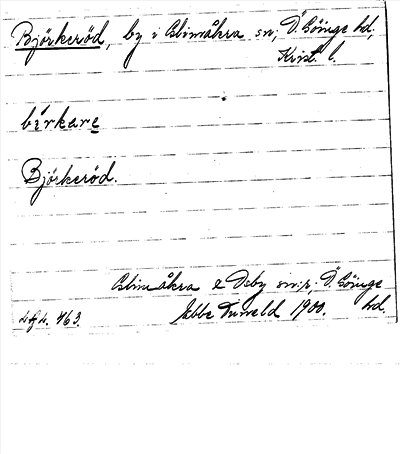 Björkeröd, by i Glimåkra sn, Ö. Göinge hd,
Krist. l.
bírkare
Björkeröd.
Glimåkra & Ösby snr; Ö. Göinge
Ebbe Tuneld 1900. hd.
463.